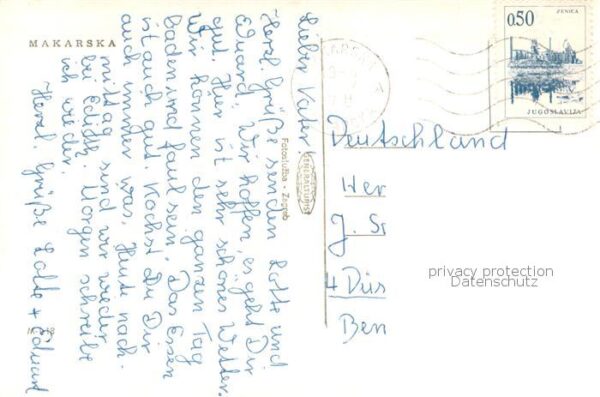 MAKARSKA
Lieber Vater!
Herzl. Grüße senden Lotte und
Eduard. Wir hoffen, es geht Dir
gut. Hier ist sehr schönes Wetter.
Wir können den ganzen Tag
baden und faul sein. Das Essen
ist auch gut. Kochst Du Dir
auch immer was. Heute nach-
mittag sind wir wieder
bei Edith. Morgen schreibe
ich wieder.
Herzl. Grüße Lotte + Eduard
Fotoslužba - Zagreb
GENERALTURIST
ZENICA
0.50
JUGOSLAVIJA
Deutschland
Her
J. Sr
4 Düs
Ben
privacy protection
Datenschutz